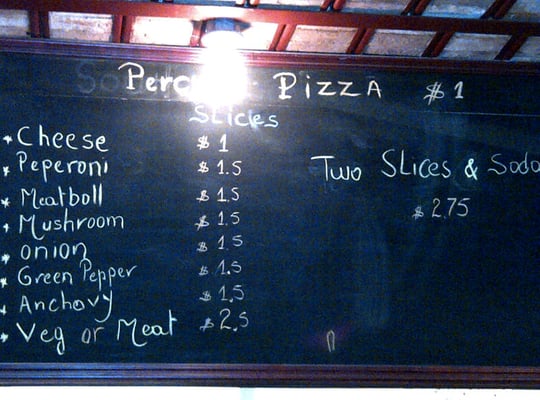 Pizza $ 1
Slices
* Cheese $ 1
* Peperoni $ 1.5
* Meatboll $ 1.5
* Mushroom $ 1.5
* onion $ 1.5
* Green Pepper $ 1.5
* Anchovy $ 1.5
* Veg or Meat $ 2.5
Two Slices & Soda
$ 2.75